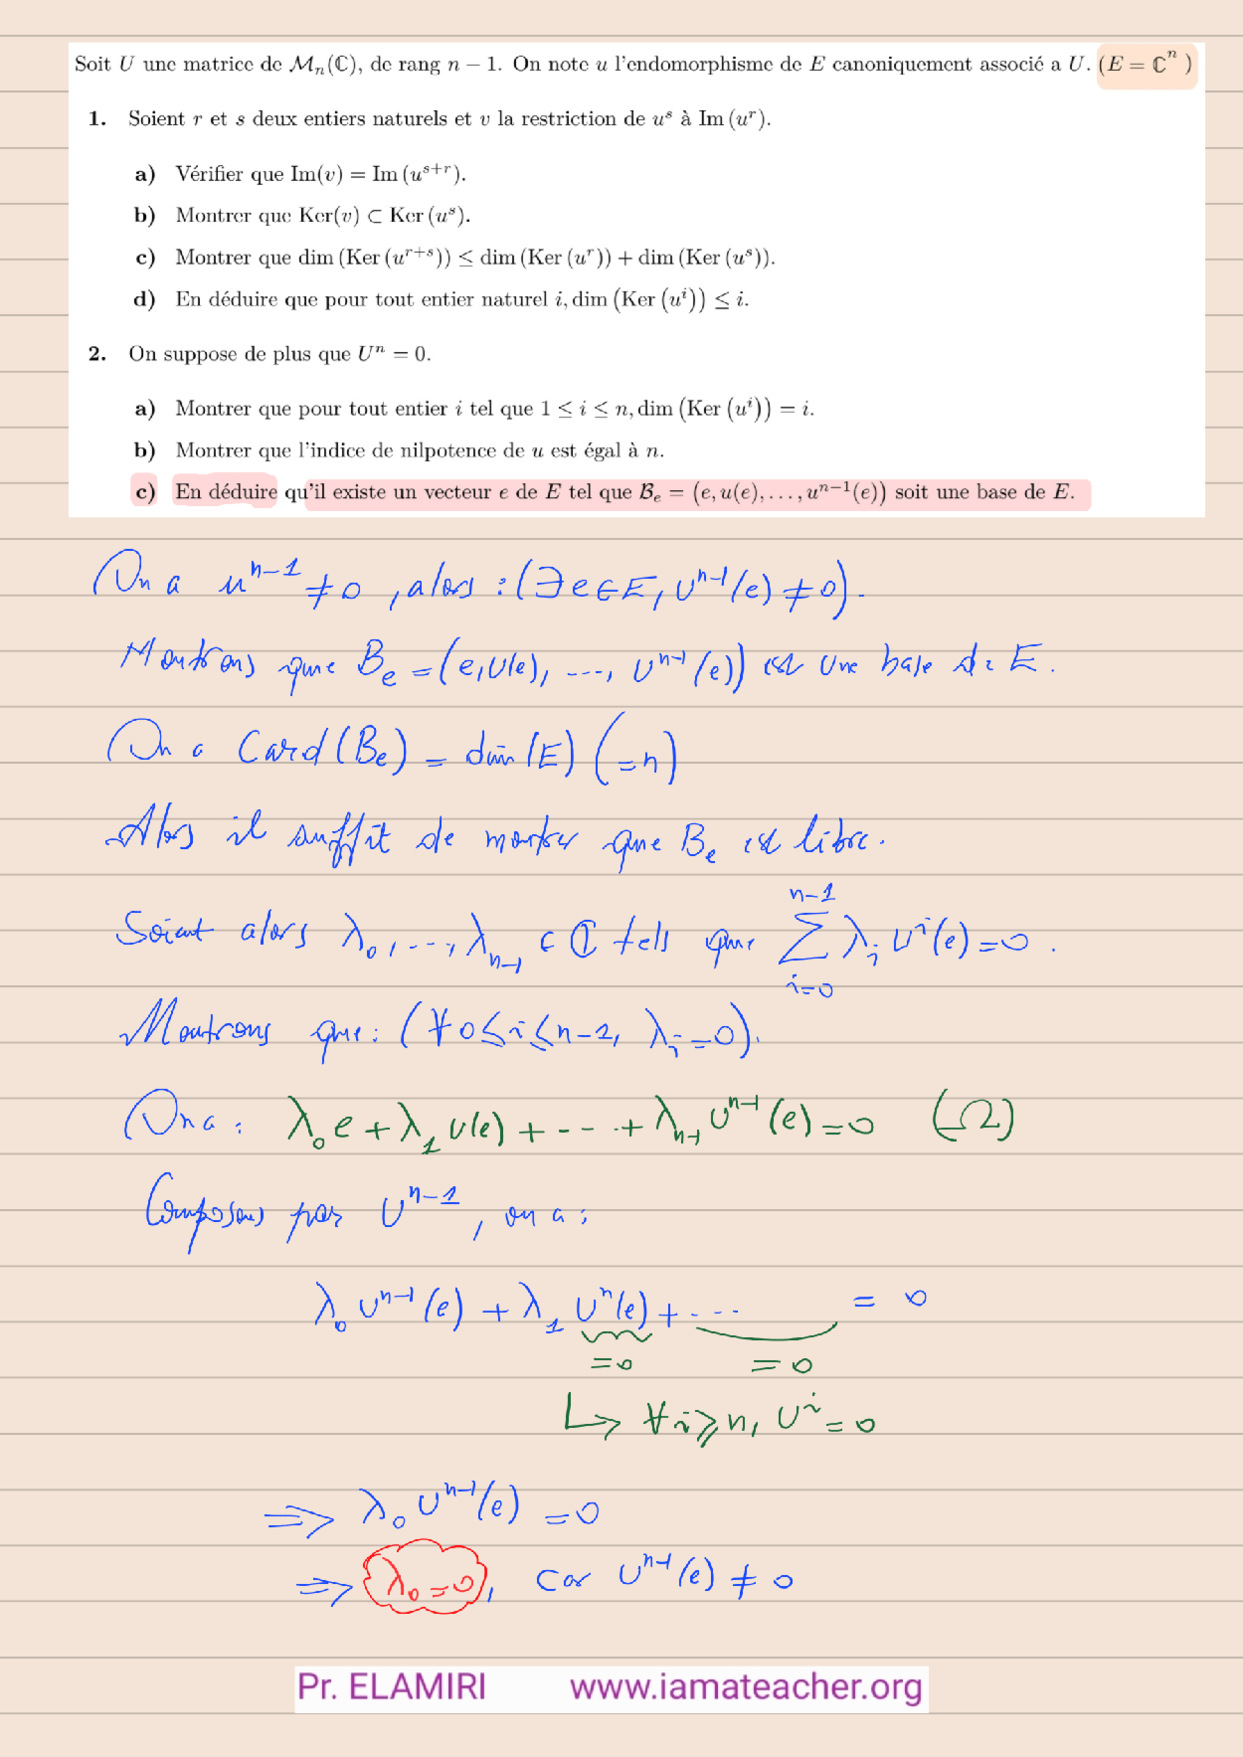 Soit U une matrice de Mₙ(ℂ), de rang n − 1. On note u l'endomorphisme de E canoniquement associé a U. (E = ℂⁿ )
1. Soient r et s deux entiers naturels et v la restriction de uˢ à Im (uʳ).
a) Vérifier que Im(v) = Im (uˢ⁺ʳ).
b) Montrer que Ker(v) ⊂ Ker (uˢ).
c) Montrer que dim (Ker (uʳ⁺ˢ)) ≤ dim (Ker (uʳ)) + dim (Ker (uˢ)).
d) En déduire que pour tout entier naturel i, dim (Ker (uⁱ)) ≤ i.
2. On suppose de plus que Uⁿ = 0.
a) Montrer que pour tout entier i tel que 1 ≤ i ≤ n, dim (Ker (uⁱ)) = i.
b) Montrer que l'indice de nilpotence de u est égal à n.
c) En déduire qu'il existe un vecteur e de E tel que Bₑ = (e, u(e), . . . , uⁿ⁻¹(e)) soit une base de E.
On a uⁿ⁻¹ ≠ 0 , alors : (∃ e ∈ E, uⁿ⁻¹(e) ≠ 0).
Montrons que Bₑ = (e, u(e), ..., uⁿ⁻¹(e)) est une base de E.
On a Card(Bₑ) = dim(E) (=n)
Alors il suffit de montrer que Bₑ est libre.
Soient alors λ₀, ..., λₙ₋₁ ∈ ℂ tels que ∑_{i=0}^{n-1} λᵢ uⁱ(e) = 0 .
Montrons que : (∀ 0 ≤ i ≤ n−1, λᵢ = 0).
On a : λ₀ e + λ₁ u(e) + --- + λₙ₋₁ uⁿ⁻¹(e) = 0 (Ω)
Composons par uⁿ⁻¹, on a :
λ₀ uⁿ⁻¹(e) + λ₁ uⁿ(e) + ... = 0
=0 =0
↳ ∀ i ≥ n, uⁱ = 0
⇒ λ₀ uⁿ⁻¹(e) = 0
⇒ λ₀ = 0, car uⁿ⁻¹(e) ≠ 0
Pr. ELAMIRI www.iamateacher.org